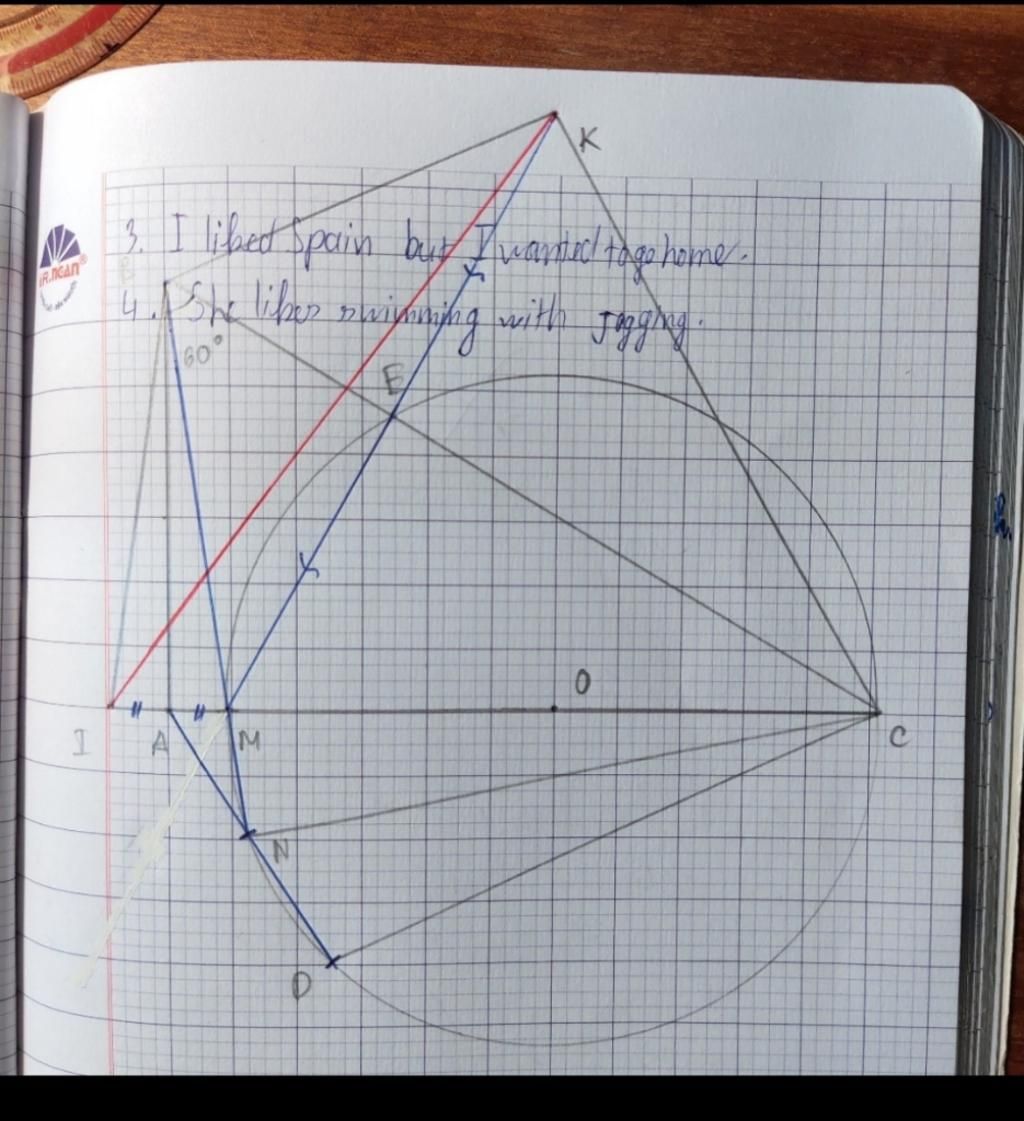 K
3. I liked Spain but I wanted to go home.
iR.NGAN®
B
4. She likes swimming with jogging.
60°
E
O
I A M C
N
D